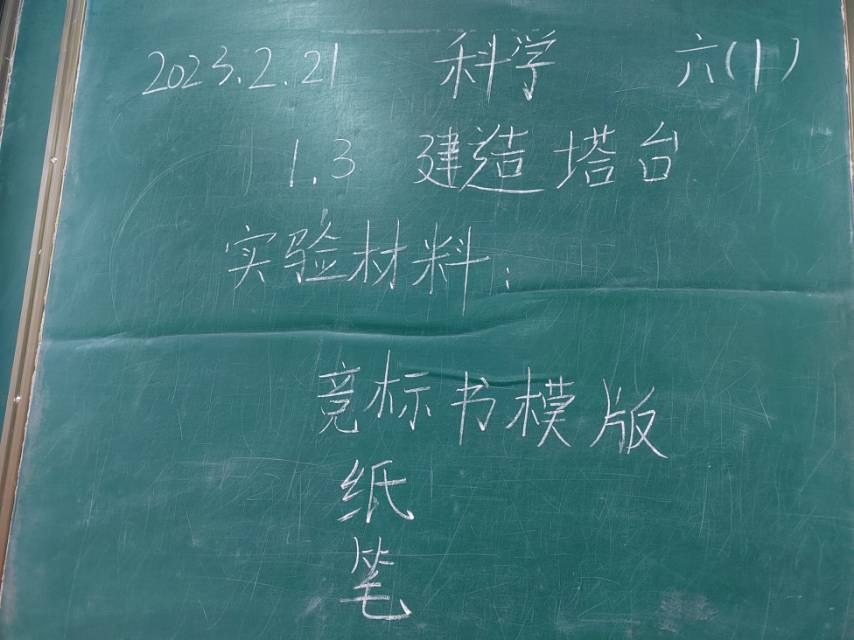 2023.2.21 科学 六(1)
1.3 建造塔台
实验材料:
竞标书模版
纸
笔